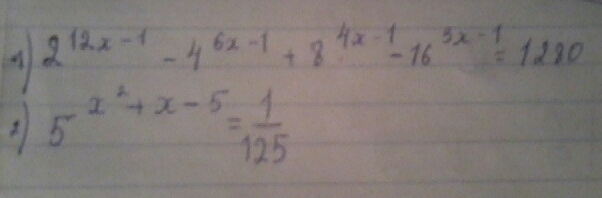 1) 2^{12x-1} - 4^{6x-1} + 8^{4x-1} - 16^{3x-1} = 1280
2) 5^{x^2+x-5} = \frac{1}{125}